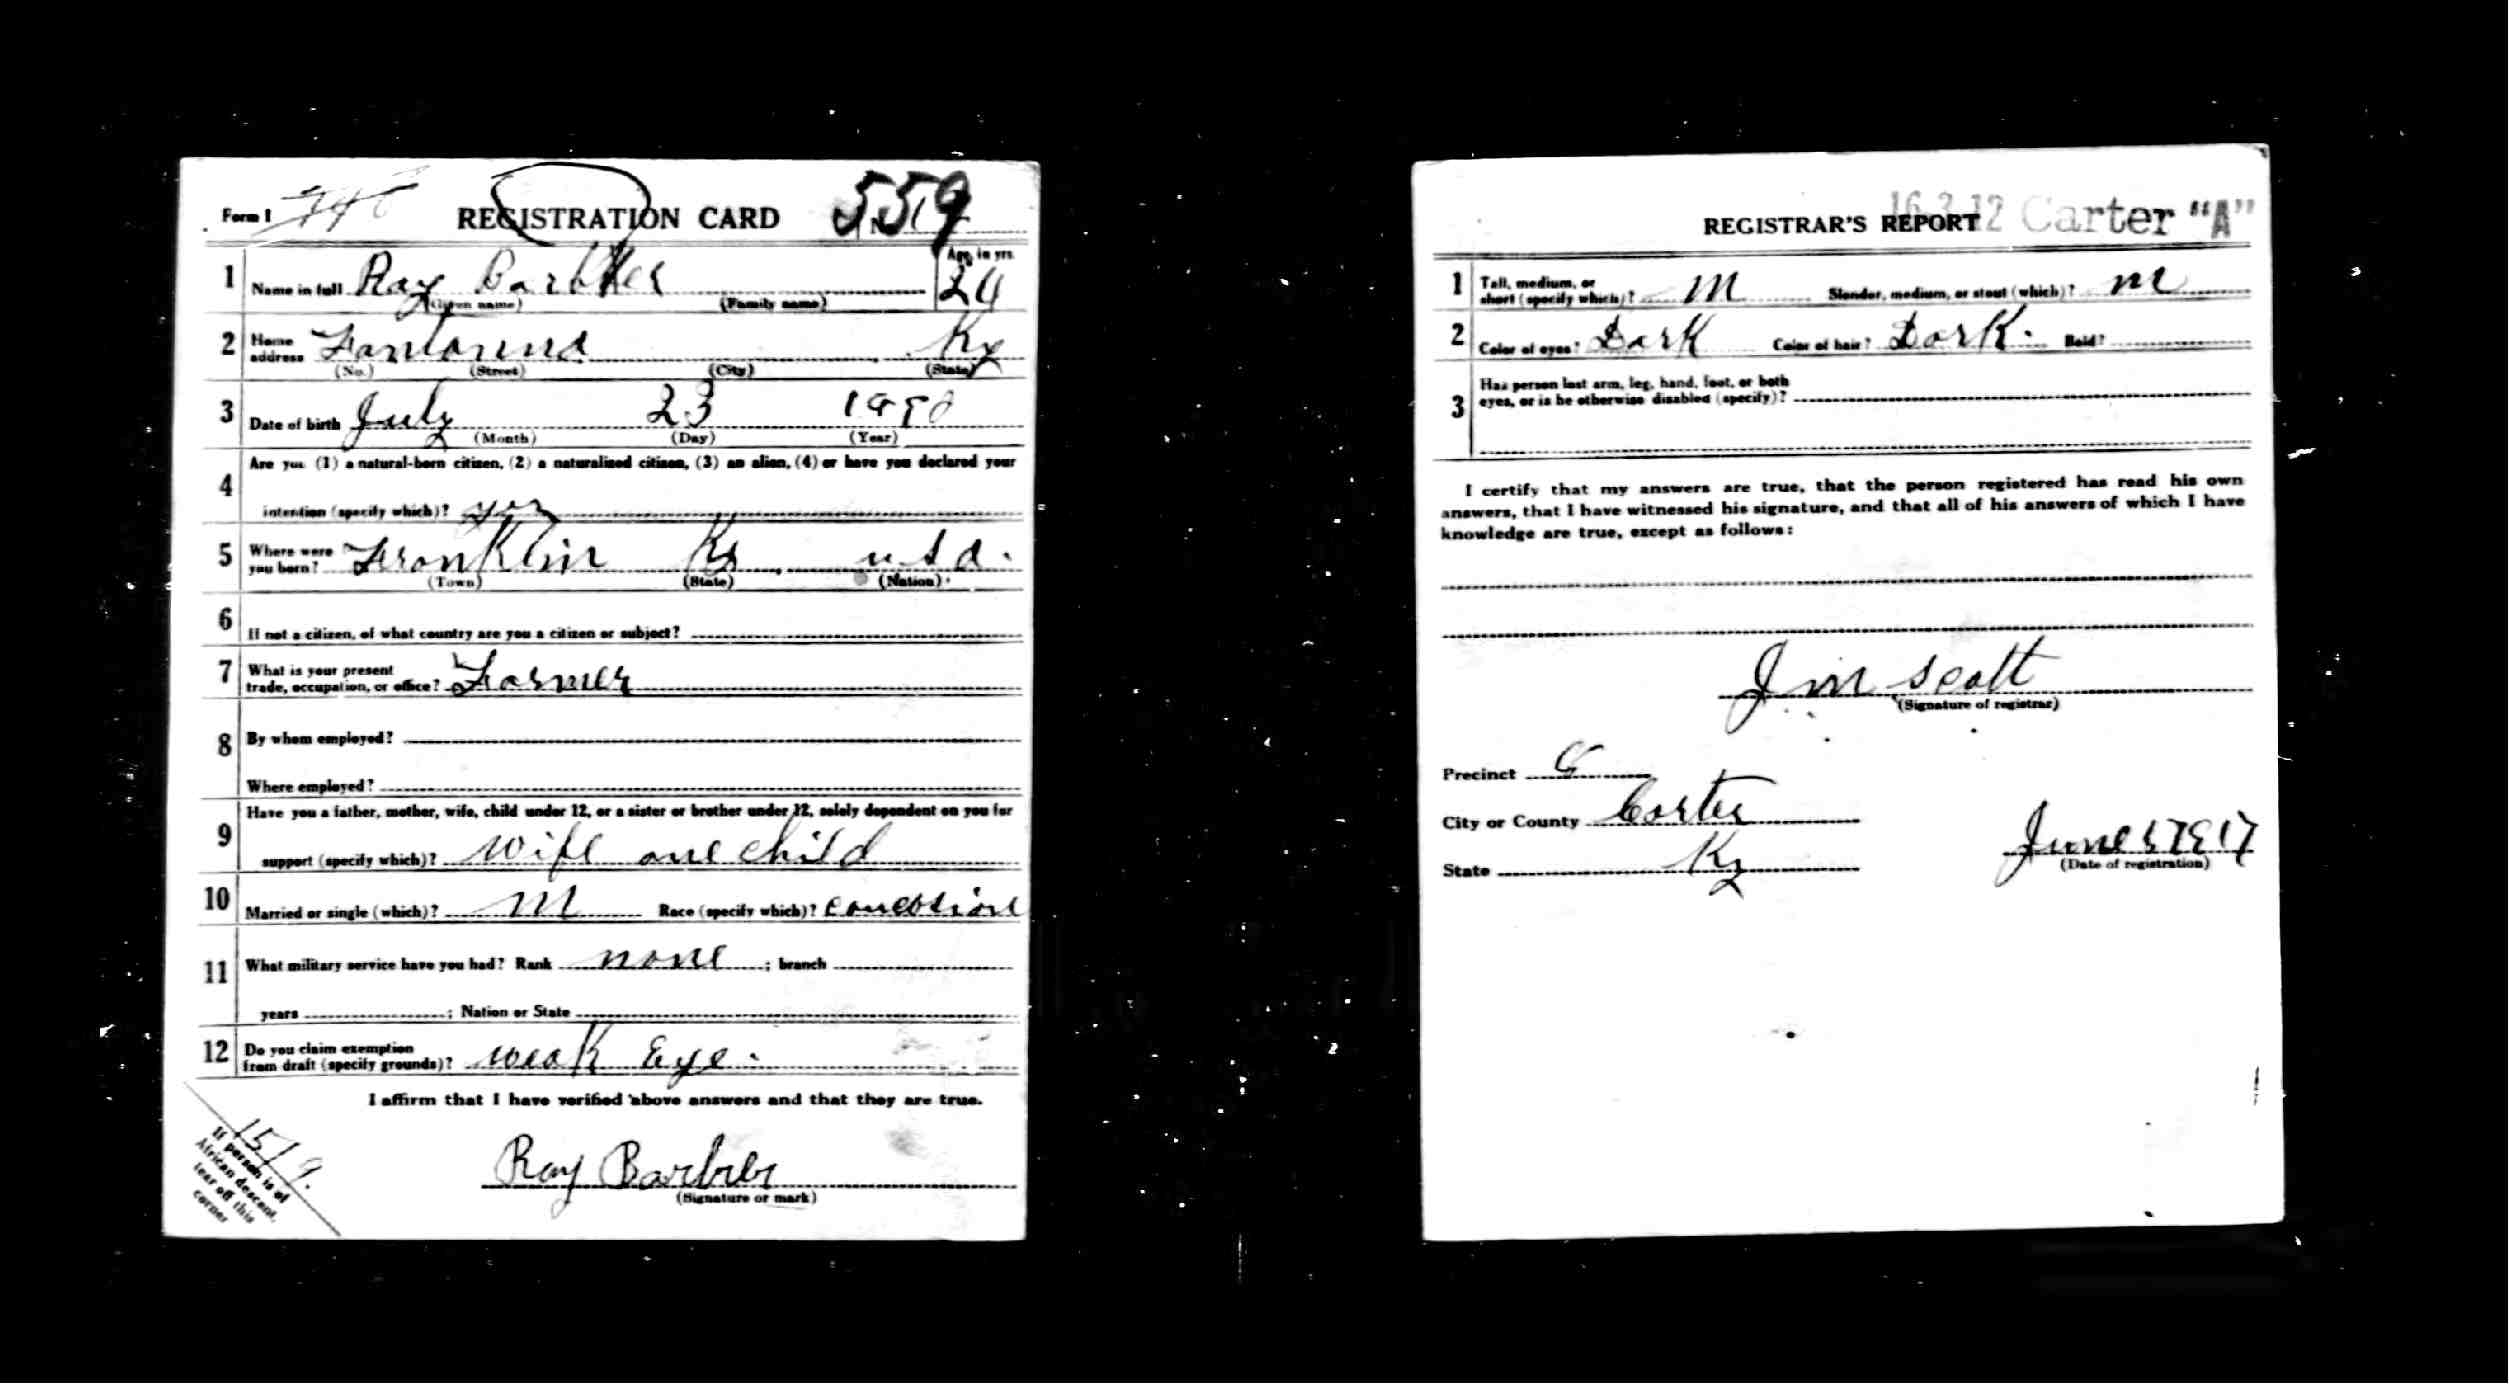 Form 1 REGISTRATION CARD No. 559
1 Name in full Ray Barbber Age, in yrs. 24
(Given name) (Family name)
2 Home address Ky
(No.) (Street) (City) (State)
3 Date of birth July 23
(Month) (Day) (Year)
4 Are you (1) a natural-born citizen, (2) a naturalized citizen, (3) an alien, (4) or have you declared your
intention (specify which)?
5 Where were you born? Franklin Ky usa.
(Town) (State) (Nation)
6 If not a citizen, of what country are you a citizen or subject?
7 What is your present trade, occupation, or office? Farmer
8 By whom employed?
Where employed?
9 Have you a father, mother, wife, child under 12, or a sister or brother under 12, solely dependent on you for
support (specify which)? Wife one child
10 Married or single (which)? M Race (specify which)?
11 What military service have you had? Rank none ; branch
years ; Nation or State
12 Do you claim exemption from draft (specify grounds)? Weak Eye.
I affirm that I have verified above answers and that they are true.
Ray Barber
(Signature or mark)
If person is of
African descent,
tear off this
corner
REGISTRAR'S REPORT 16-2-12 Carter "A"
1 Tall, medium, or short (specify which)? M Slender, medium, or stout (which)? M
2 Color of eyes? Dark Color of hair? Dark. Bald?
3 Has person lost arm, leg, hand, foot, or both
eyes, or is he otherwise disabled (specify)?
I certify that my answers are true, that the person registered has read his own
answers, that I have witnessed his signature, and that all of his answers of which I have
knowledge are true, except as follows:
Jim Scott
(Signature of registrar)
Precinct
City or County Carter
State Ky
June 5 1917
(Date of registration)